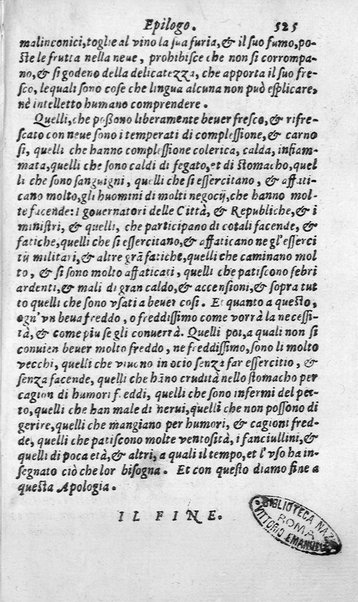 Epilogo. 525
malinconici, toglie al vino la sua furia, & il suo fumo, po-
ste le frutta nella neue, prohibisce che non si corrompa-
no, & si godeno della delicatezza, che apporta il suo fre-
sco, le quali sono cose che lingua alcuna non può esplicare,
nè intelletto humano comprendere.
Quelli, che possono liberamente beuer fresco, & rifre-
scato con neue sono i temperati di complessione, & carno
si, quelli che hanno complessione colerica, calda, infiam-
mata, quelli che sono caldi di fegato, et di stomacho, quel
li che sono sanguigni, quelli che si essercitano, & affati-
cano molto, gli huomini di molti negocij, che hanno mol-
te facende: i gouernatori delle Città, & Republiche, & i
ministri, & quelli, che participano di cotali facende, &
fatiche, quelli che si essercitano, & affaticano ne gl'esserci
tij militari, & altre grā fatiche, quelli che caminano mol
to, & si sono molto affaticati, quelli che patiscono febri
ardenti, & mali di gran caldo, & accensioni, & sopra tut
to quelli che sono vsati a beuer cosi. Et quanto a questo,
ogn'vn beua freddo, o freddissimo come vorrà la necessi-
tà, & come più se gli conuerrà. Quelli poi, a quali non si
conuien beuer molto freddo, ne freddissimo, sono li molto
vecchi, quelli che viuono in ocio senza far essercitio, &
senza facende, quelli che hāno crudità nello stomacho per
cagion di humori freddi, quelli che sono infermi del pet-
to, quelli che han male di nerui, quelli che non possono di
gerire, quelli che mangiano per humori, & cagioni fred-
de, quelli che patiscono molte ventosità, i fanciullini, &
quelli di poca età, & altri, a quali il tempo, et l'vso ha in-
segnato ciò che lor bisogna. Et con questo diamo fine a
questa Apologia.
IL FINE.
BIBLIOTECA NAZ.
ROMA
VITTORIO EMANUELE